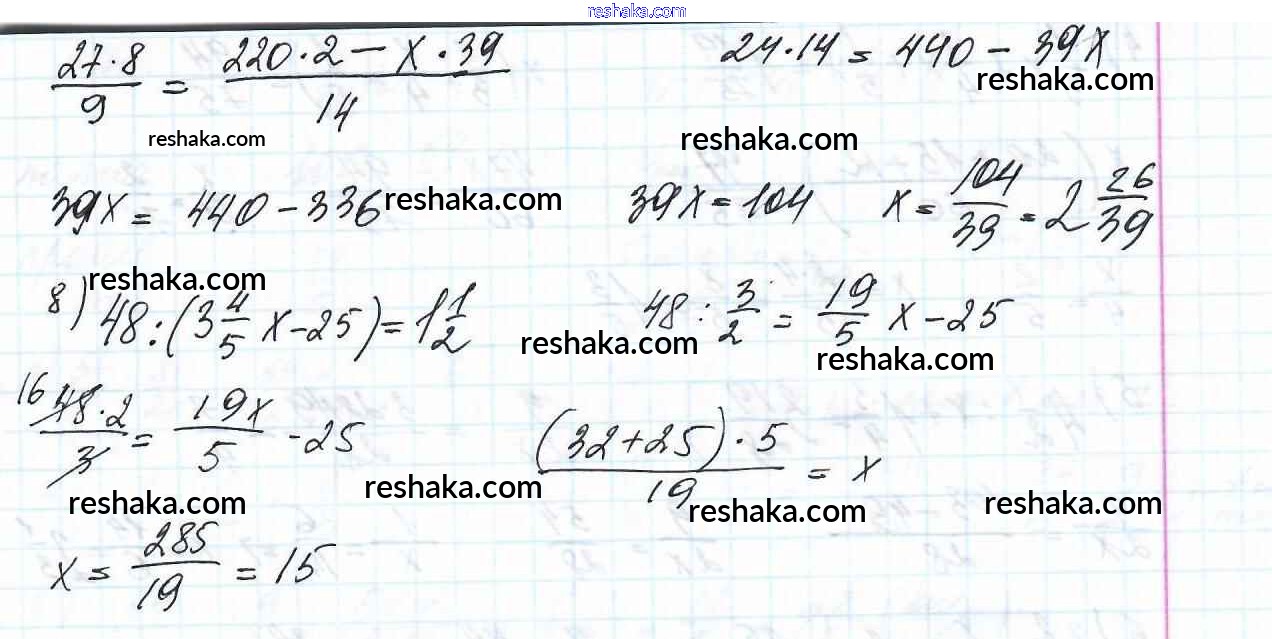 reshaka.com
27·8/9 = (220·2 − x·39)/14    24·14 = 440 − 39x
reshaka.com
reshaka.com
reshaka.com
39x = 440 − 336 reshaka.com    39x = 104    x = 104/39 = 2 26/39
reshaka.com
8) 48 : (3 4/5 x − 25) = 1 1/2    48 : 3/2 = 19/5 x − 25
reshaka.com
reshaka.com
16 48·2/3 = 19x/5 − 25    (32+25)·5/19 = x
reshaka.com
reshaka.com
reshaka.com
reshaka.com
x = 285/19 = 15